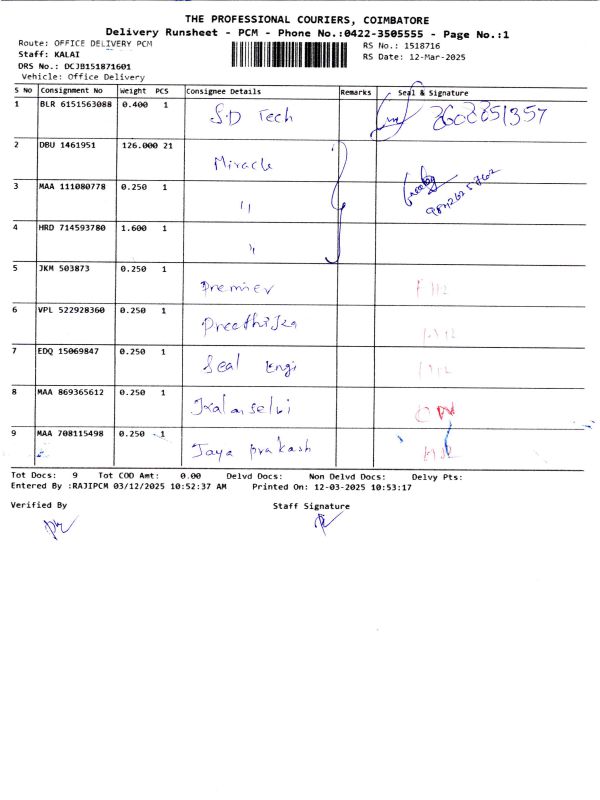 THE PROFESSIONAL COURIERS, COIMBATORE
Delivery Runsheet - PCM - Phone No.:0422-3505555 - Page No.:1
Route: OFFICE DELIVERY PCM RS No.: 1518716
Staff: KALAI RS Date: 12-Mar-2025
DRS No.: DCJB151871601
Vehicle: Office Delivery
S No Consignment No Weight PCS Consignee Details Remarks Seal & Signature
1 BLR 6151563088 0.400 1 S.D Tech
2 DBU 1461951 126.000 21 Miracle
3 MAA 111080778 0.250 1 "
4 HRD 714593780 1.600 1 "
5 JKM 503873 0.250 1 Premier
6 VPL 522928360 0.250 1 Preethika
7 EDQ 15069847 0.250 1 Seal Engi
8 MAA 869365612 0.250 1 Kalai selvi
9 MAA 708115498 0.250 1 Jaya prakash
Tot Docs: 9 Tot COD Amt: 0.00 Delvd Docs: Non Delvd Docs: Delvy Pts:
Entered By :RAJIPCM 03/12/2025 10:52:37 AM Printed On: 12-03-2025 10:53:17
Verified By Staff Signature